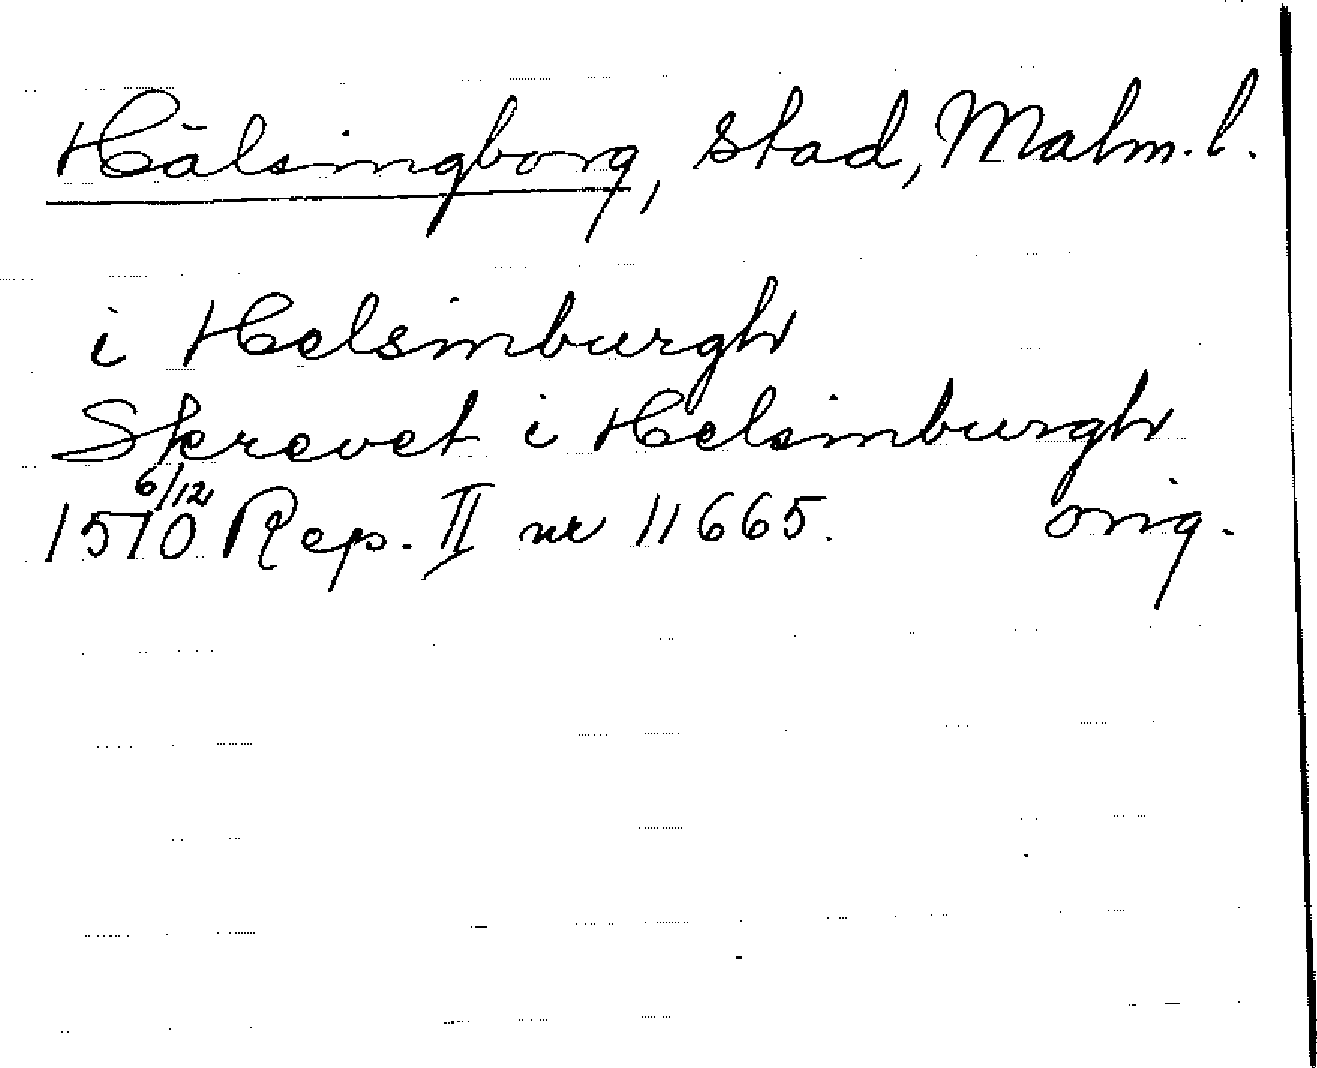 Hälsingborg, stad, Malm. l.
i Helsinburgh
Skrevet i Helsinburgh
6/12
1510 Rep. II nr 11665. orig.